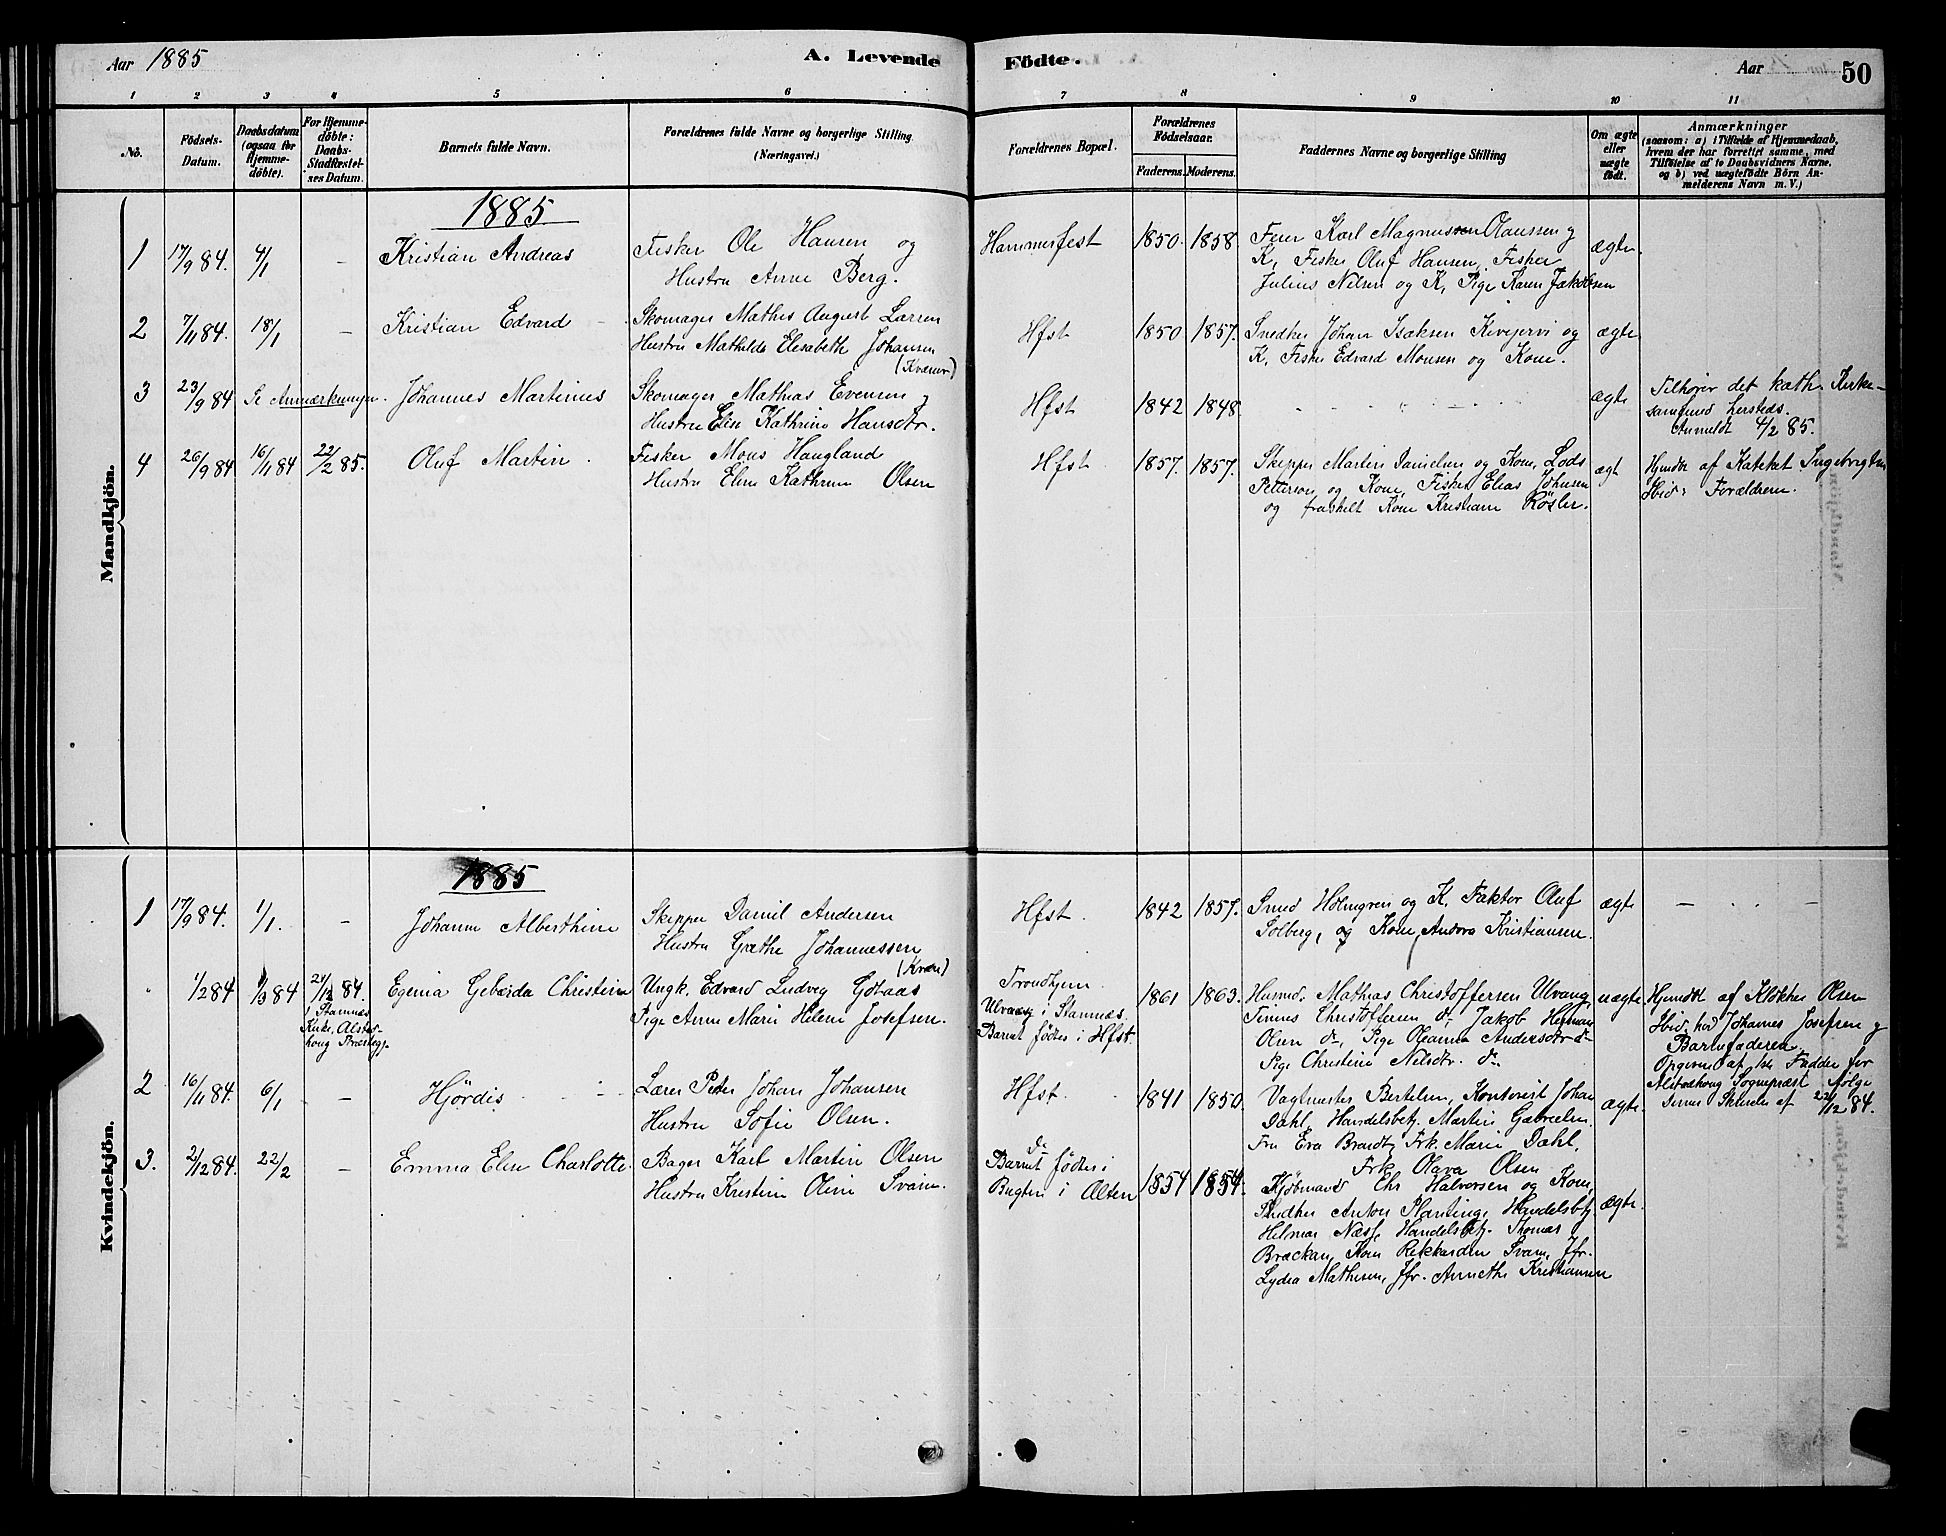 Aar 1885
A. Levende Födte.
Aar 50
1 2 3 4 5 6 7 8 9 10 11
No.
Födsels-Datum.
Daabsdatum (ogsaa for Hjemmedöbte).
For Hjemmedöbte: Daabs-Stadfæstelses Datum.
Barnets fulde Navn.
Forældrenes fulde Navne og borgerlige Stilling (Næringsvei.)
Forældrenes Bopæl.
Forældrenes Födselsaar.
Faderens. Moderens.
Faddernes Navne og borgerlige Stilling
Om ægte eller uægte födt.
Anmærkninger
(saasom: a) i Tilfælde af Hjemmedaab, hvem der har forrettet samme, med Tilföielse af to Daabsvidners Navne, og b) ved uægtefödte Börn Anmelderens Navn m.V.)
Mandkjön.
1885
1 17/9 84. 4/1 - Kristian Andreas
Fisker Ole Hansen og
Hustru Anne Berg.
Hammerfest 1850. 1858
Feier Karl Magnussen Olaussen og
K, Fisker Oluf Hansen, Fisker
Julius Nilsen og K, Pige Karen Jakobsen
ægte
2 7/11 84. 18/1 - Kristian Edvard
Skomager Mathis August Larsen
Hustru Mathilde Elisabeth Johansen
(Kvæner)
Hfst 1850 1857.
Snedker Johan Isaksen Kivejervi og
K, Fisker Edvard Monsen og Kone.
ægte
3 23/9 84 Se Anmærkningen. Johannes Martinus
Skomager Mathias Evensen og
Hustru Elise Kathrine Hansdtr.
Hfst 1842 1848
ægte
Tilhører det kath. Kirke-
samfund hersteds.
Anmeldt 4/2 85.
4 26/9 84 16/11 84 22/2 85. Oluf Martin.
Fisker Mons Haugland
Hustru Elen Kathrine Olsen
Hfst 1857. 1857.
Skipper Martin Danielsen og Kone, Lods
Petterson og Kone, Fisker Elias Johnsen
og fraskilt Kone Kristiane Røsler.
ægt
Hjmdbt af Katekt Ingebrigtsen
Hvid: Forældrene.
Kvindekjön.
1885
1 17/9 84. 1/1. - Johanne Alberthine
Skipper Daniel Andersen
Hustru Græthe Johannessen
(Kvæn)
Hfst. 1842 1857.
Smed Holmgren og K. Faktor Oluf
Solberg, og Kone, Andora Kristiansen.
ægte
1/2 84 1/3 84 21/12 84.
i Stamnæs
Kirke, Alsta-
houg Præstegj.
Egenia Gebærda Christine
Ungk. Edvard Ludvig Gotaas
Pige Anne Marie Helene Josefsen.
Trondhjem
Ulvang i Stamnæs.
Barnet fødtes i Hfst.
1861 1863.
Husmd. Mathias Christoffersen Ulvang
Tinnes Christoffersen do, Jakob Herman
Olsen do, Pige Oleanna Andersdtr do
Pige Christine Nilsdtr. do
uægte
Hjmdbt af Klokker Olsen
Hvid. hos Johannes Josefsen og
Barnefaderen
Opgivend af Fadder for
Alstadhoug Sogneprest ifølge
Dennes Skrivelse af 22/12 84.
2 16/11 84. 6/1 - Hjördis
Lærer Peter Johan Johansen
Hustru Sofie Olsen.
Hfst. 1841 1850.
Vagtmester Bertelsen, Kontorist Johan
Dahl, Handelsbetj. Martin Gabrielsen
Fru Eva Brandt, Frk. Marie Dahl,
Frk Olava Olsen
ægte.
3. 2/12 84. 22/2 - Emma Elise Charlotte.
Bager Karl Martin Olsen
Hustru Kristine Oline Svane.
do
Barnet fødtes i
Bugten i Alten
1854 1854.
Kjøbmand Chr Halvorsen og Kone,
Snedker Anton Plantinge Handelsbetj.
Helmar Næss, Handelsbetj. Thomas
Brækkan, Kone Rikkardine Svane, Jfr.
Lydia Mathisen, Jfr. Annethe Kristiansen
ægte.